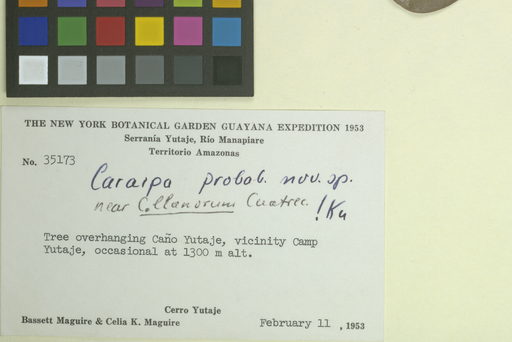 THE NEW YORK BOTANICAL GARDEN GUAYANA EXPEDITION 1953
Serranía Yutaje, Río Manapiare
Territorio Amazonas
No. 35173
Caraipa probab. nov. sp.
near Collanorum Cuatrec.
! Ku
Tree overhanging Caño Yutaje, vicinity Camp
Yutaje, occasional at 1300 m alt.
Cerro Yutaje
Bassett Maguire & Celia K. Maguire February 11 , 1953